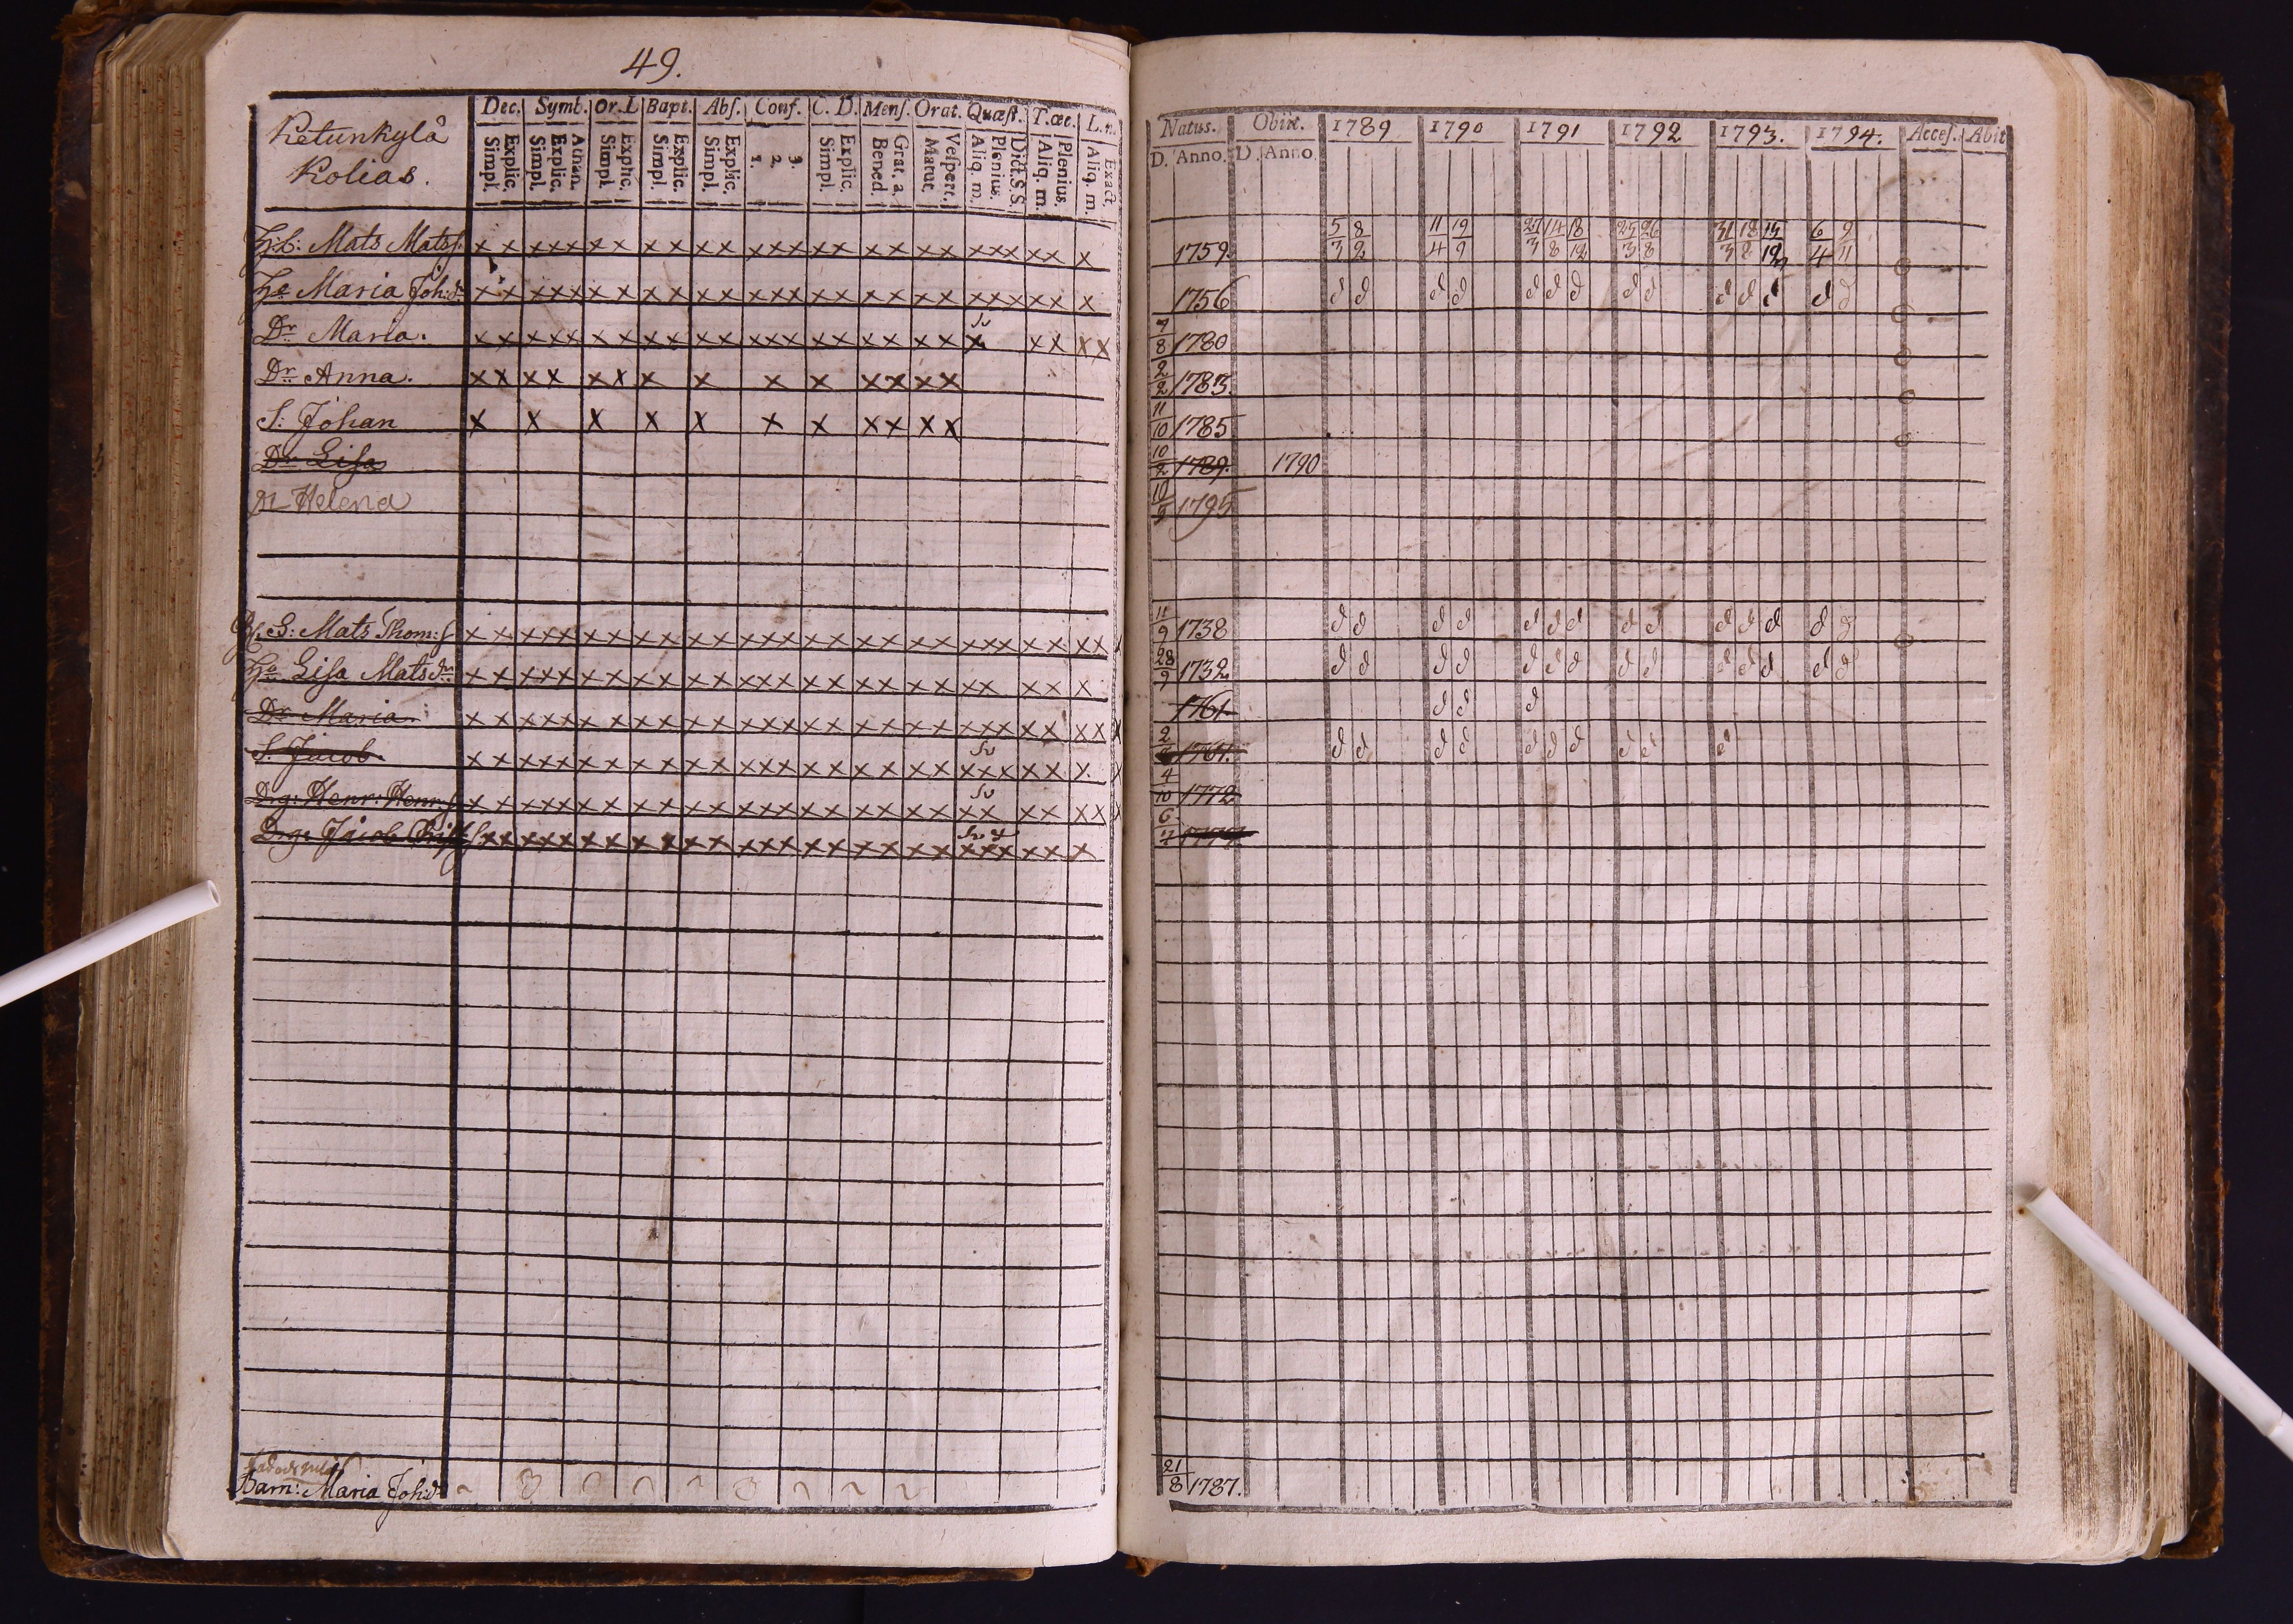 49.
Ketunkylä
Kolias.
Dec. Symb. Or. L Bapt. Abſ. Conf. C. D. Menſ. Orat. Quæſt. T. œc. L. n.
Simpl. Explic. Simpl. Explic. Athan. Simpl. Explic. Simpl. Explic. Simpl. Explic. 1. 2. 3. Simpl. Explic. Bened. Grat. a. Matut. Veſpert. Aliq. m. Plenius. Dict. S. S. Aliq. m. Plenius. Aliq. m. Exact
Natus. Obiit. 1789 1790 1791 1792 1793. 1794. Acceſ. Abit
D. Anno. D. Anno
H:b: Mats Matsſ. x x x x x x x x x x x x x x x x x x x x x x x x x x 1759. 5/3 8/2 11/4 19/9 27/3 14/8 18/12 25/3 26/8 31/3 18/8 15/12 6/4 9/11
Hu Maria Joh:dr x x x x x x x x x x x x x x x x x x x x x x x x x x 1756
Dr Maria. x x x x x x x x x x x x x x x x x x x x x x x x x 7/8 1780
Dr Anna. x x x x x x x x x x x x x x x 2/2 1783.
S: Johan x x x x x x x x x x x 11/10 1785
Dr Liſa 10/2 1789. 1790
Dr Helena 10/5 1795
S: Mats Thom:ſ 11/9 1738
Hu Liſa Mats dr 28/9 1732
Dr Maria. 1761.
S. Jacob. 2 1761.
Drg: Henr: Henr:ſ 4/10 1772
Drg: Jacob 6/7
Barn: Maria Joh:dr 21/8 1787.